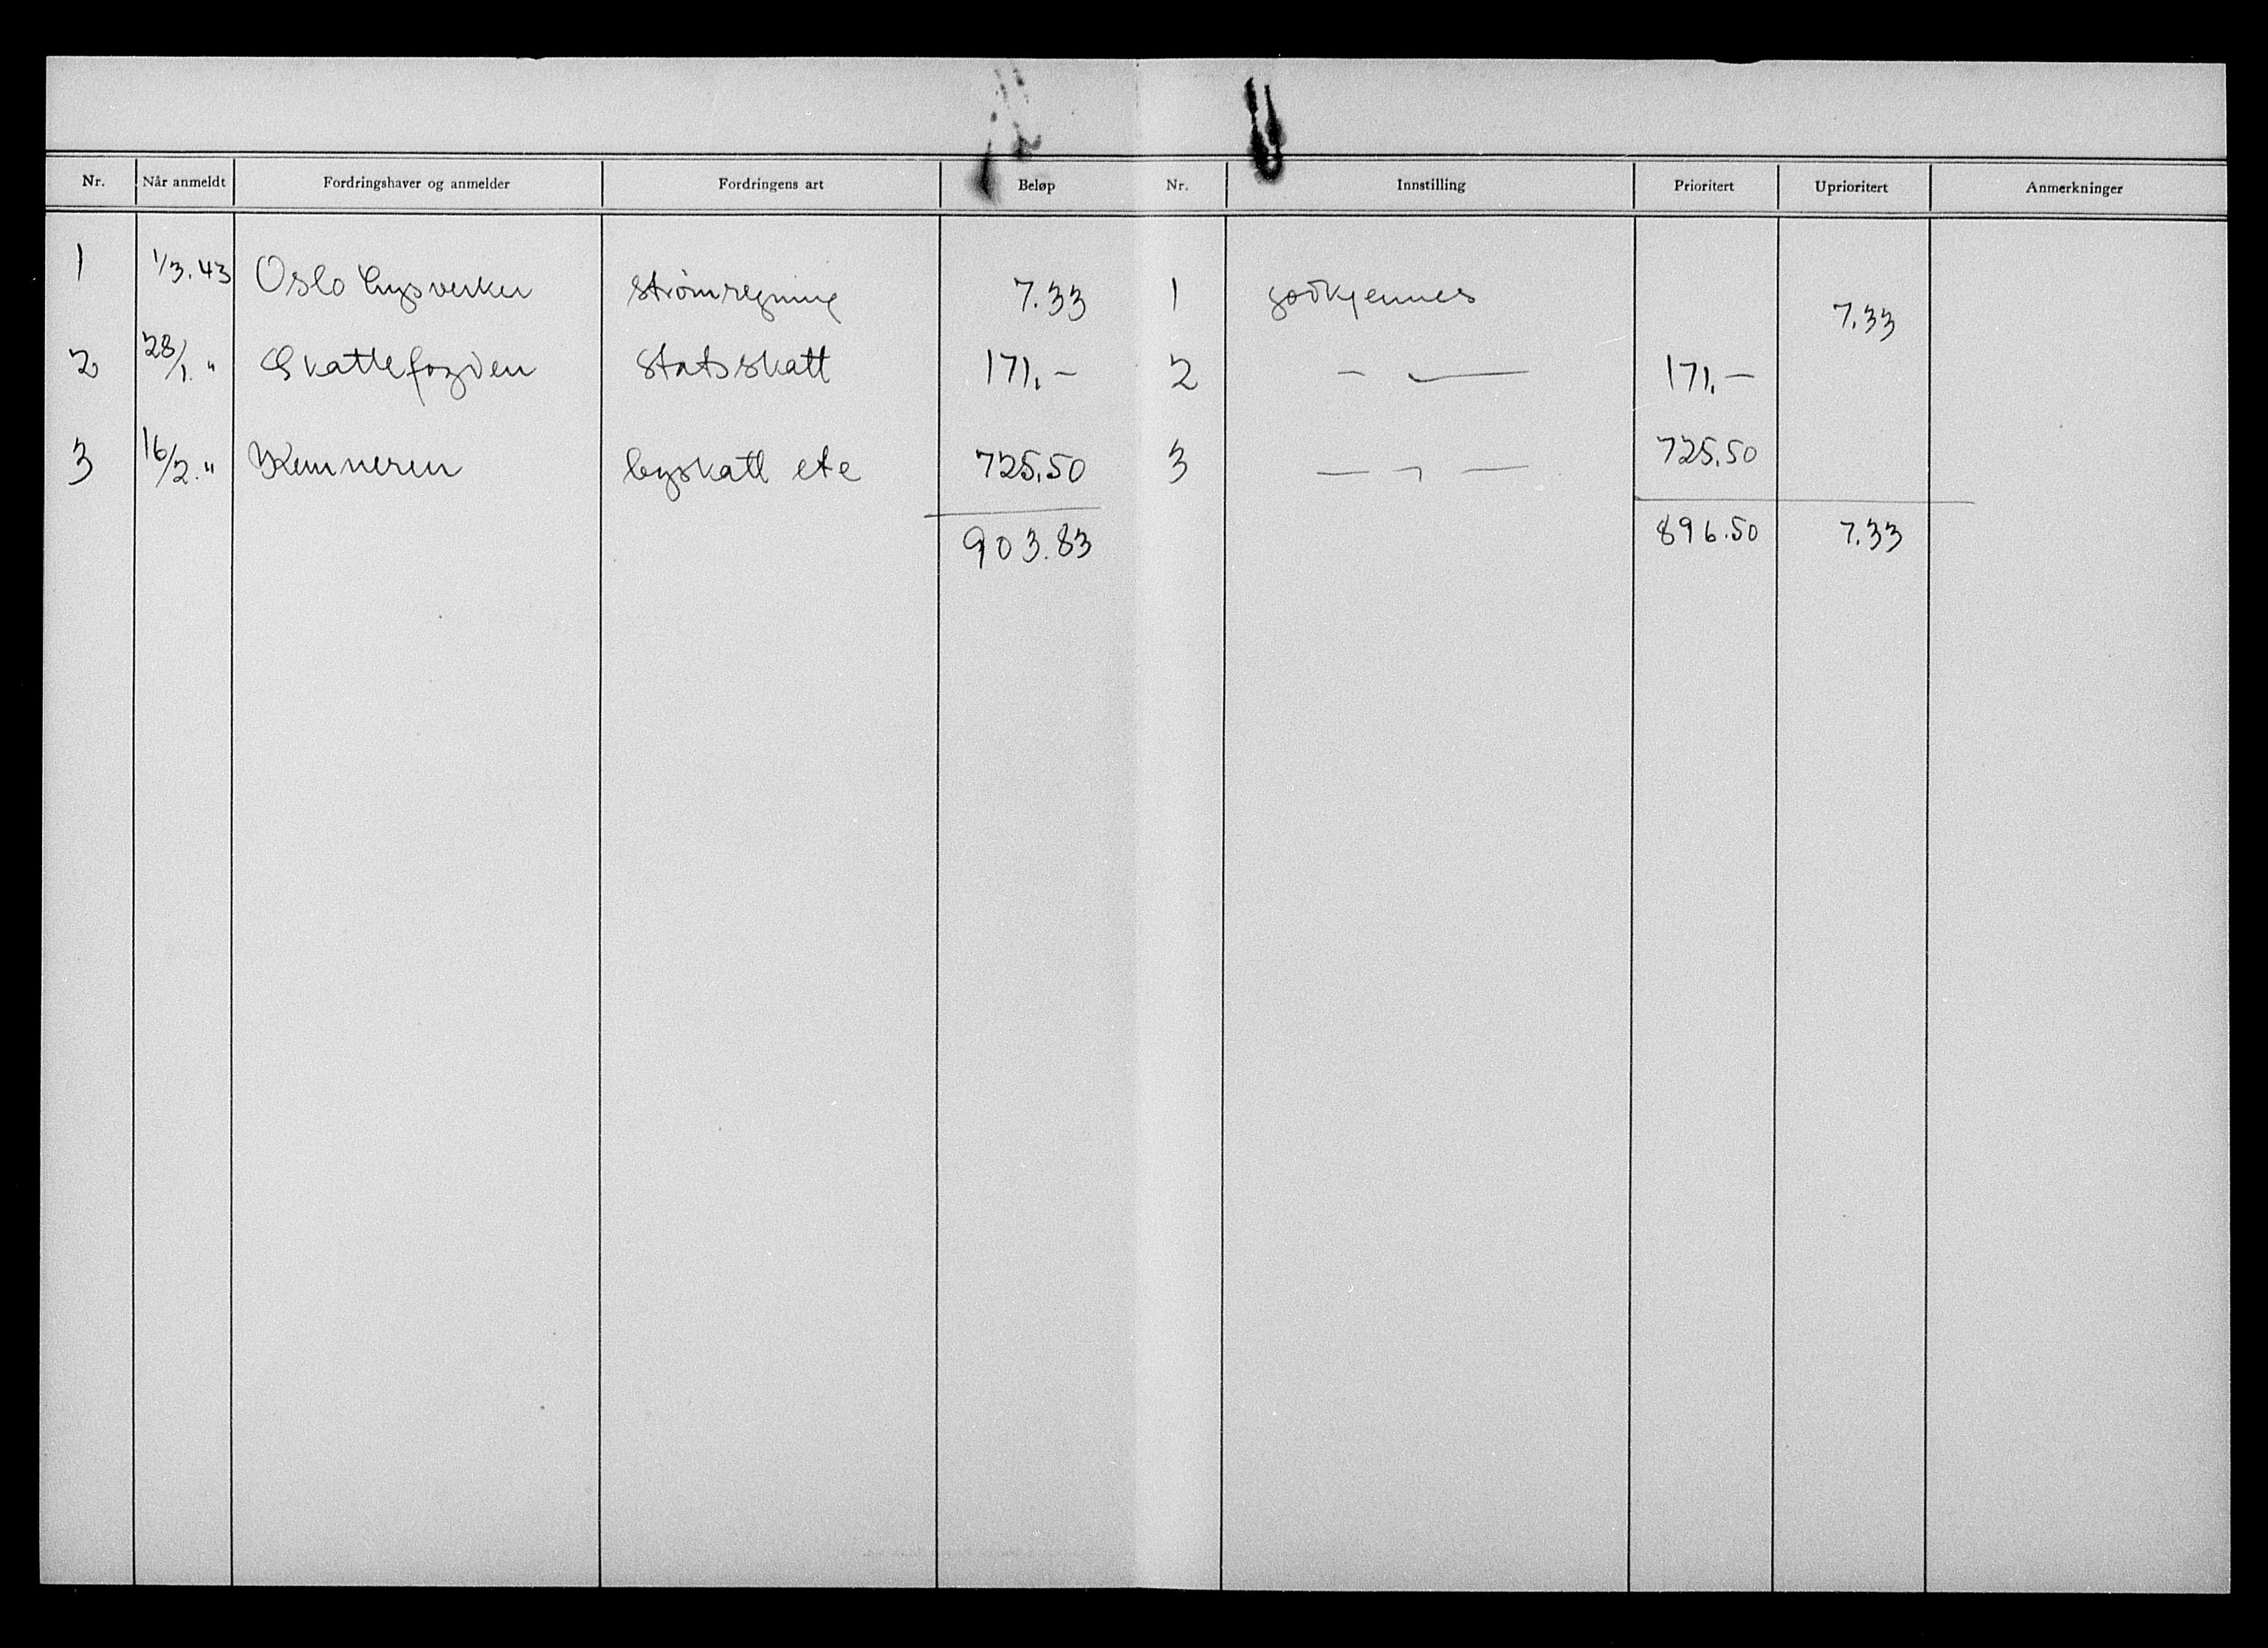 Nr. Når anmeldt Fordringshaver og anmelder Fordringens art Beløp Nr. Innstilling Prioritert Uprioritert Anmerkninger
1 1/3.43 Oslo Lysverker strømregning 7.33 1 godkjennes 7.33
2 28/1. " Skattefogden Statsskatt 171.- 2 — " — 171.-
3 16/2. " Kemneren byskatt etc 725.50 3 — " — 725.50
903.83 896.50 7.33